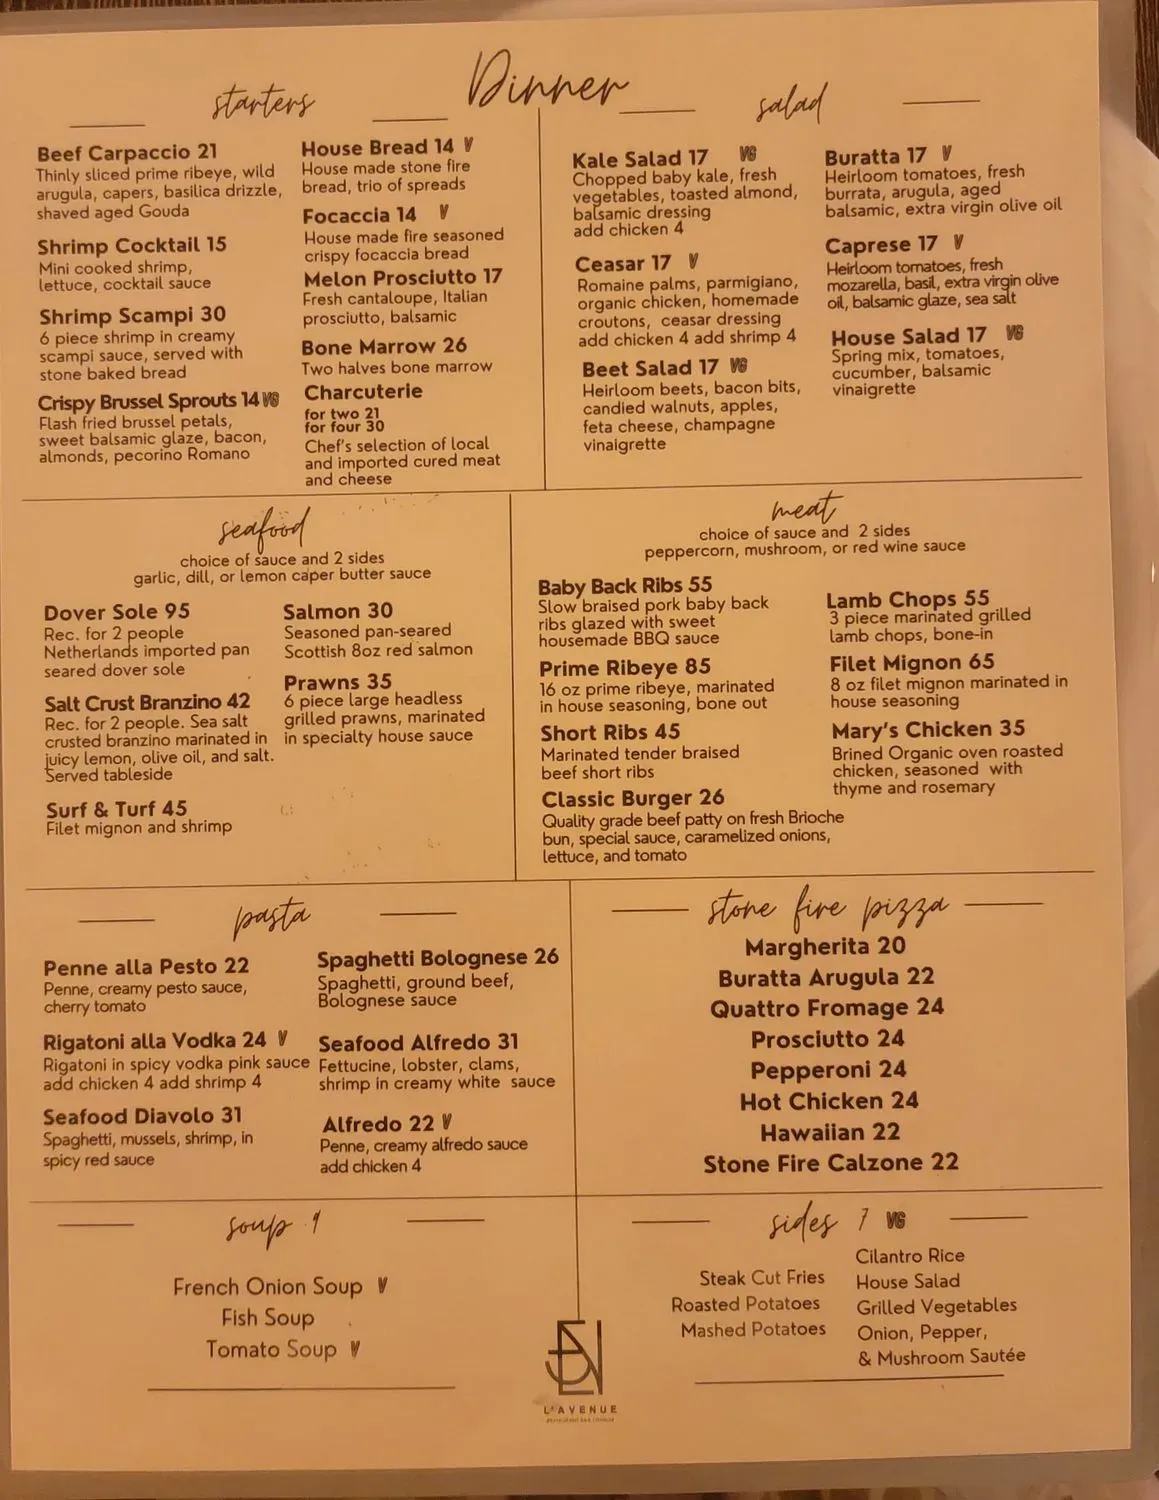 Dinner
starters
Beef Carpaccio 21
Thinly sliced prime ribeye, wild
arugula, capers, basilica drizzle,
shaved aged Gouda
Shrimp Cocktail 15
Mini cooked shrimp,
lettuce, cocktail sauce
Shrimp Scampi 30
6 piece shrimp in creamy
scampi sauce, served with
stone baked bread
Crispy Brussel Sprouts 14 VG
Flash fried brussel petals,
sweet balsamic glaze, bacon,
almonds, pecorino Romano
House Bread 14 V
House made stone fire
bread, trio of spreads
Focaccia 14 V
House made fire seasoned
crispy focaccia bread
Melon Prosciutto 17
Fresh cantaloupe, Italian
prosciutto, balsamic
Bone Marrow 26
Two halves bone marrow
Charcuterie
for two 21
for four 30
Chef's selection of local
and imported cured meat
and cheese
salad
Kale Salad 17 VG
Chopped baby kale, fresh
vegetables, toasted almond,
balsamic dressing
add chicken 4
Ceasar 17 V
Romaine palms, parmigiano,
organic chicken, homemade
croutons, ceasar dressing
add chicken 4 add shrimp 4
Beet Salad 17 VG
Heirloom beets, bacon bits,
candied walnuts, apples,
feta cheese, champagne
vinaigrette
Buratta 17 V
Heirloom tomatoes, fresh
burrata, arugula, aged
balsamic, extra virgin olive oil
Caprese 17 V
Heirloom tomatoes, fresh
mozarella, basil, extra virgin olive
oil, balsamic glaze, sea salt
House Salad 17 VG
Spring mix, tomatoes,
cucumber, balsamic
vinaigrette
seafood
choice of sauce and 2 sides
garlic, dill, or lemon caper butter sauce
Dover Sole 95
Rec. for 2 people
Netherlands imported pan
seared dover sole
Salt Crust Branzino 42
Rec. for 2 people. Sea salt
crusted branzino marinated in
juicy lemon, olive oil, and salt.
Served tableside
Surf & Turf 45
Filet mignon and shrimp
Salmon 30
Seasoned pan-seared
Scottish 8oz red salmon
Prawns 35
6 piece large headless
grilled prawns, marinated
in specialty house sauce
meat
choice of sauce and 2 sides
peppercorn, mushroom, or red wine sauce
Baby Back Ribs 55
Slow braised pork baby back
ribs glazed with sweet
housemade BBQ sauce
Prime Ribeye 85
16 oz prime ribeye, marinated
in house seasoning, bone out
Short Ribs 45
Marinated tender braised
beef short ribs
Classic Burger 26
Quality grade beef patty on fresh Brioche
bun, special sauce, caramelized onions,
lettuce, and tomato
Lamb Chops 55
3 piece marinated grilled
lamb chops, bone-in
Filet Mignon 65
8 oz filet mignon marinated in
house seasoning
Mary's Chicken 35
Brined Organic oven roasted
chicken, seasoned with
thyme and rosemary
pasta
Penne alla Pesto 22
Penne, creamy pesto sauce,
cherry tomato
Rigatoni alla Vodka 24 V
Rigatoni in spicy vodka pink sauce
add chicken 4 add shrimp 4
Seafood Diavolo 31
Spaghetti, mussels, shrimp, in
spicy red sauce
Spaghetti Bolognese 26
Spaghetti, ground beef,
Bolognese sauce
Seafood Alfredo 31
Fettucine, lobster, clams,
shrimp in creamy white sauce
Alfredo 22 V
Penne, creamy alfredo sauce
add chicken 4
stone fire pizza
Margherita 20
Buratta Arugula 22
Quattro Fromage 24
Prosciutto 24
Pepperoni 24
Hot Chicken 24
Hawaiian 22
Stone Fire Calzone 22
soup 9
French Onion Soup V
Fish Soup
Tomato Soup V
sides 7 VG
Steak Cut Fries
Roasted Potatoes
Mashed Potatoes
Cilantro Rice
House Salad
Grilled Vegetables
Onion, Pepper,
& Mushroom Sautée
L'AVENUE